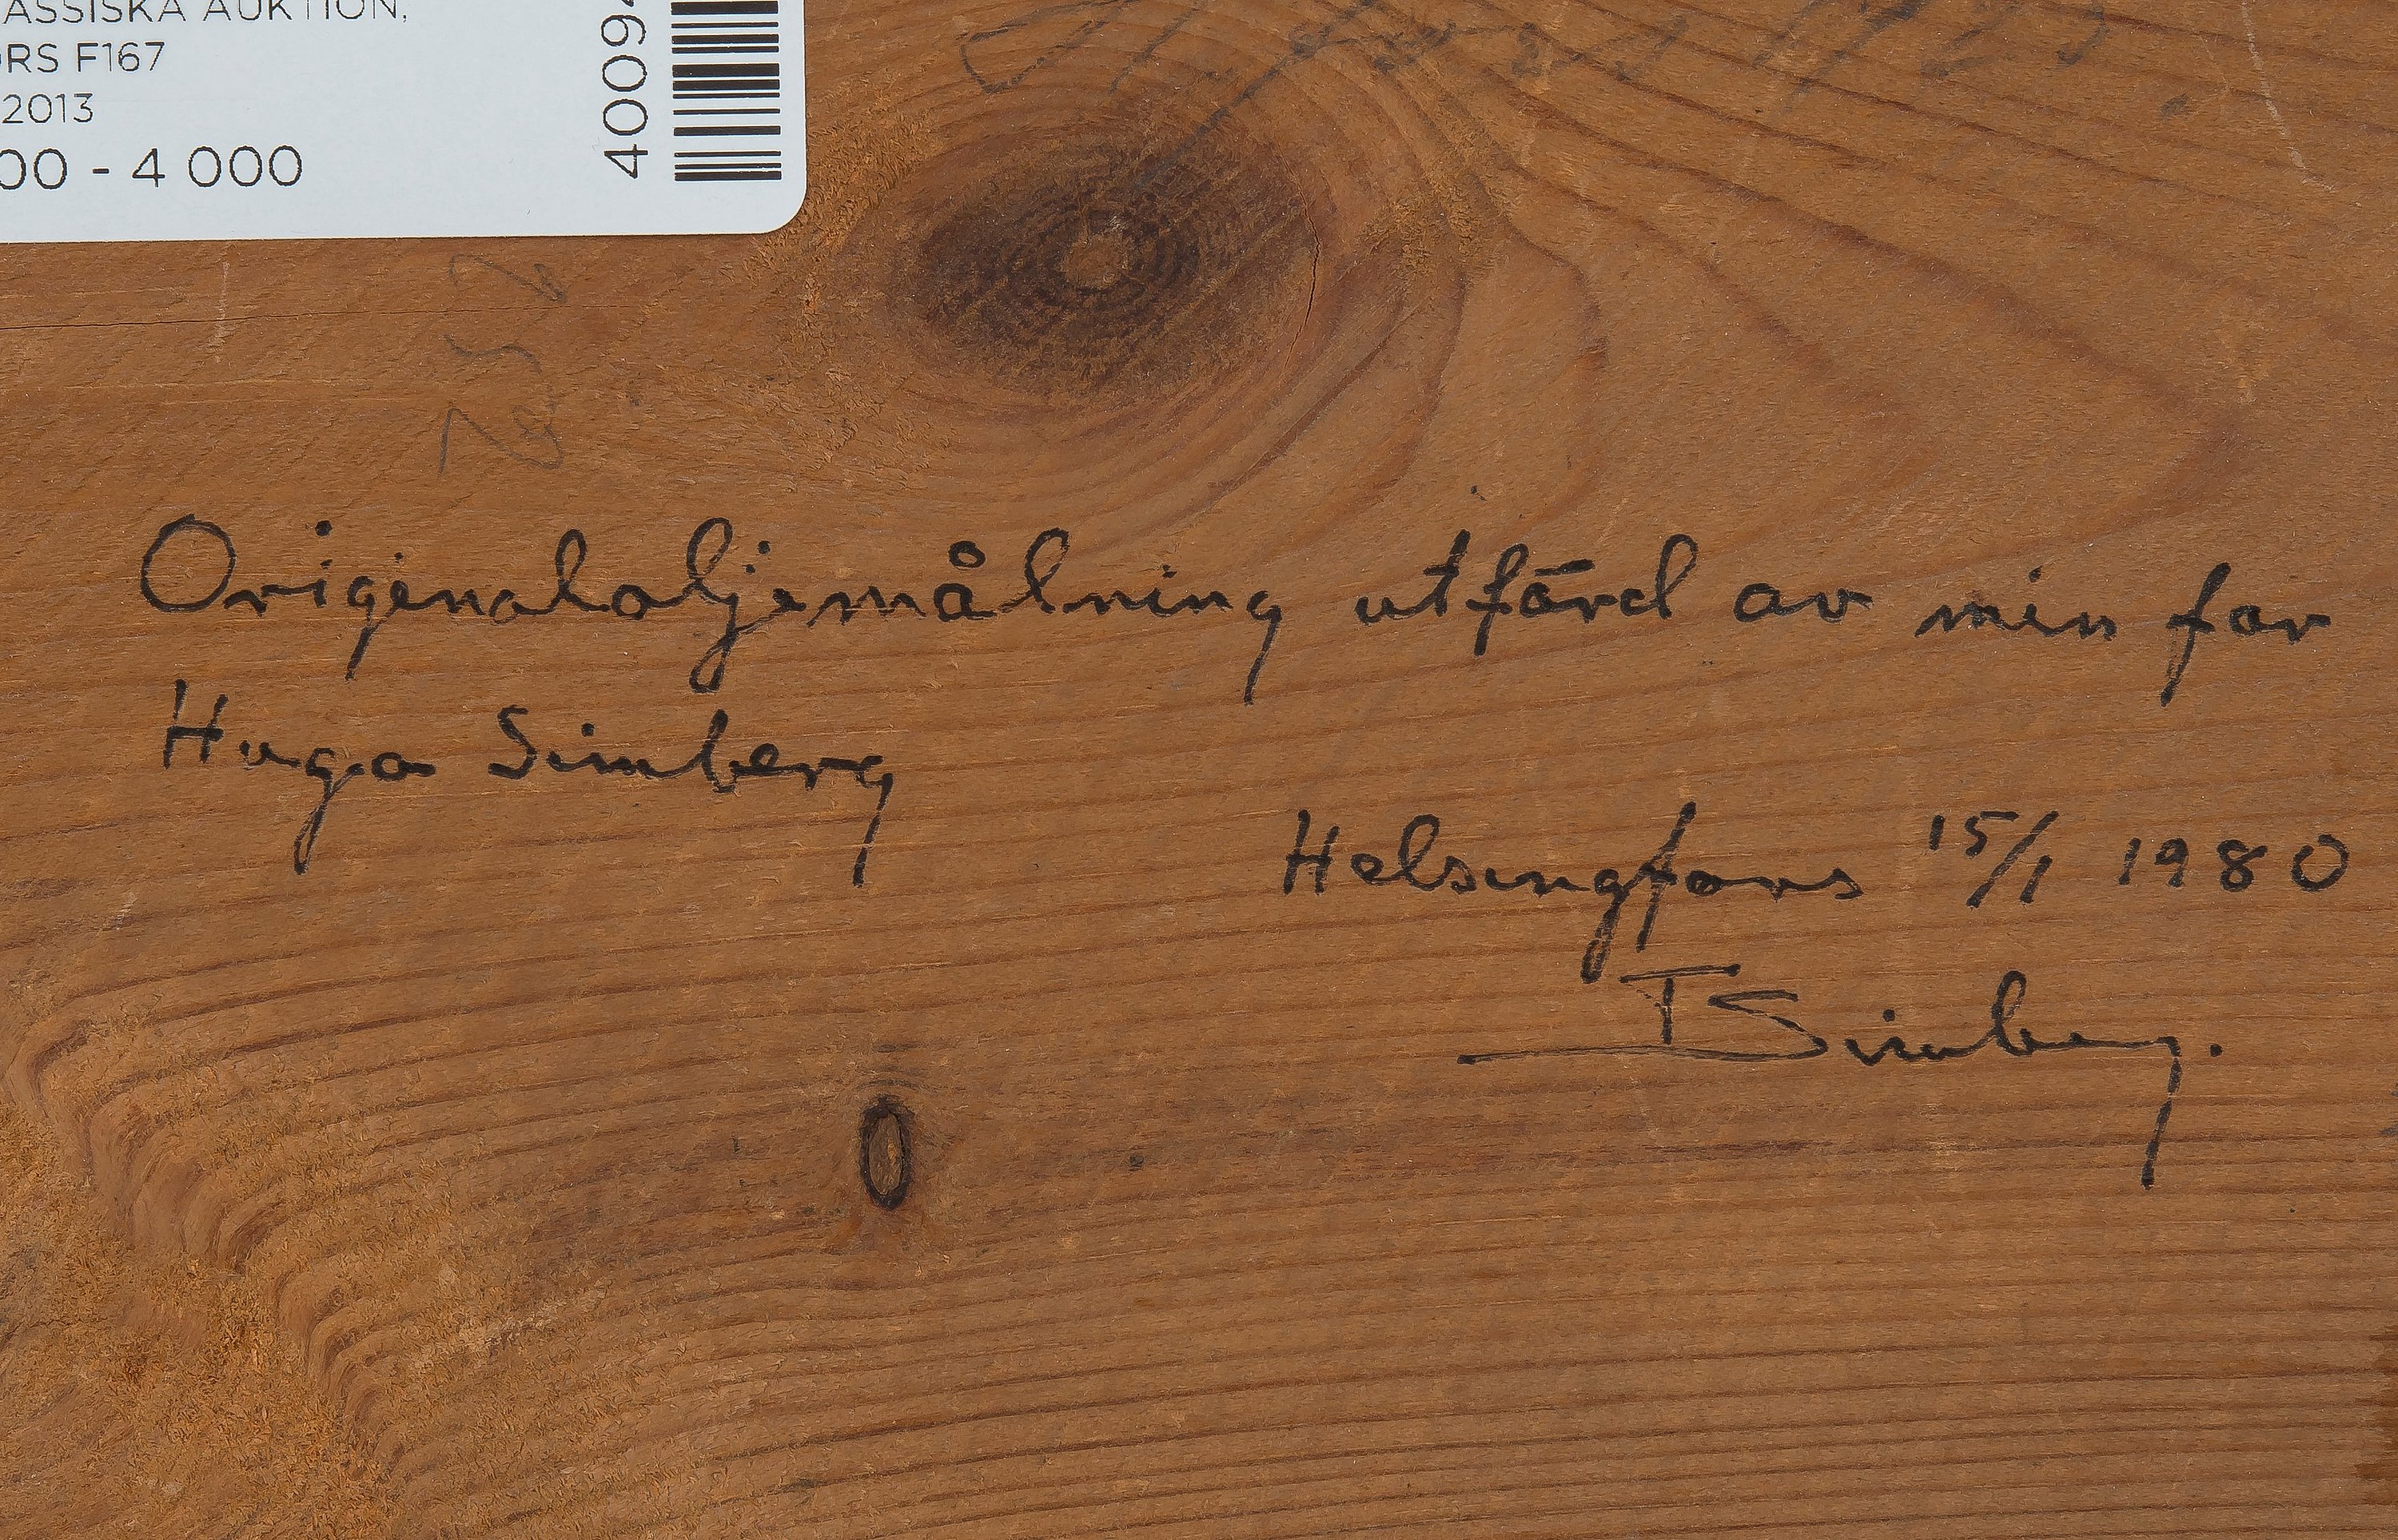 ASSISKA AUKTION,
ORS F167
2013
00 - 4 000
4009
Originaloljemålning utförd av min far
Hugo Simberg
Helsingfors 15/1 1980
T Simberg.